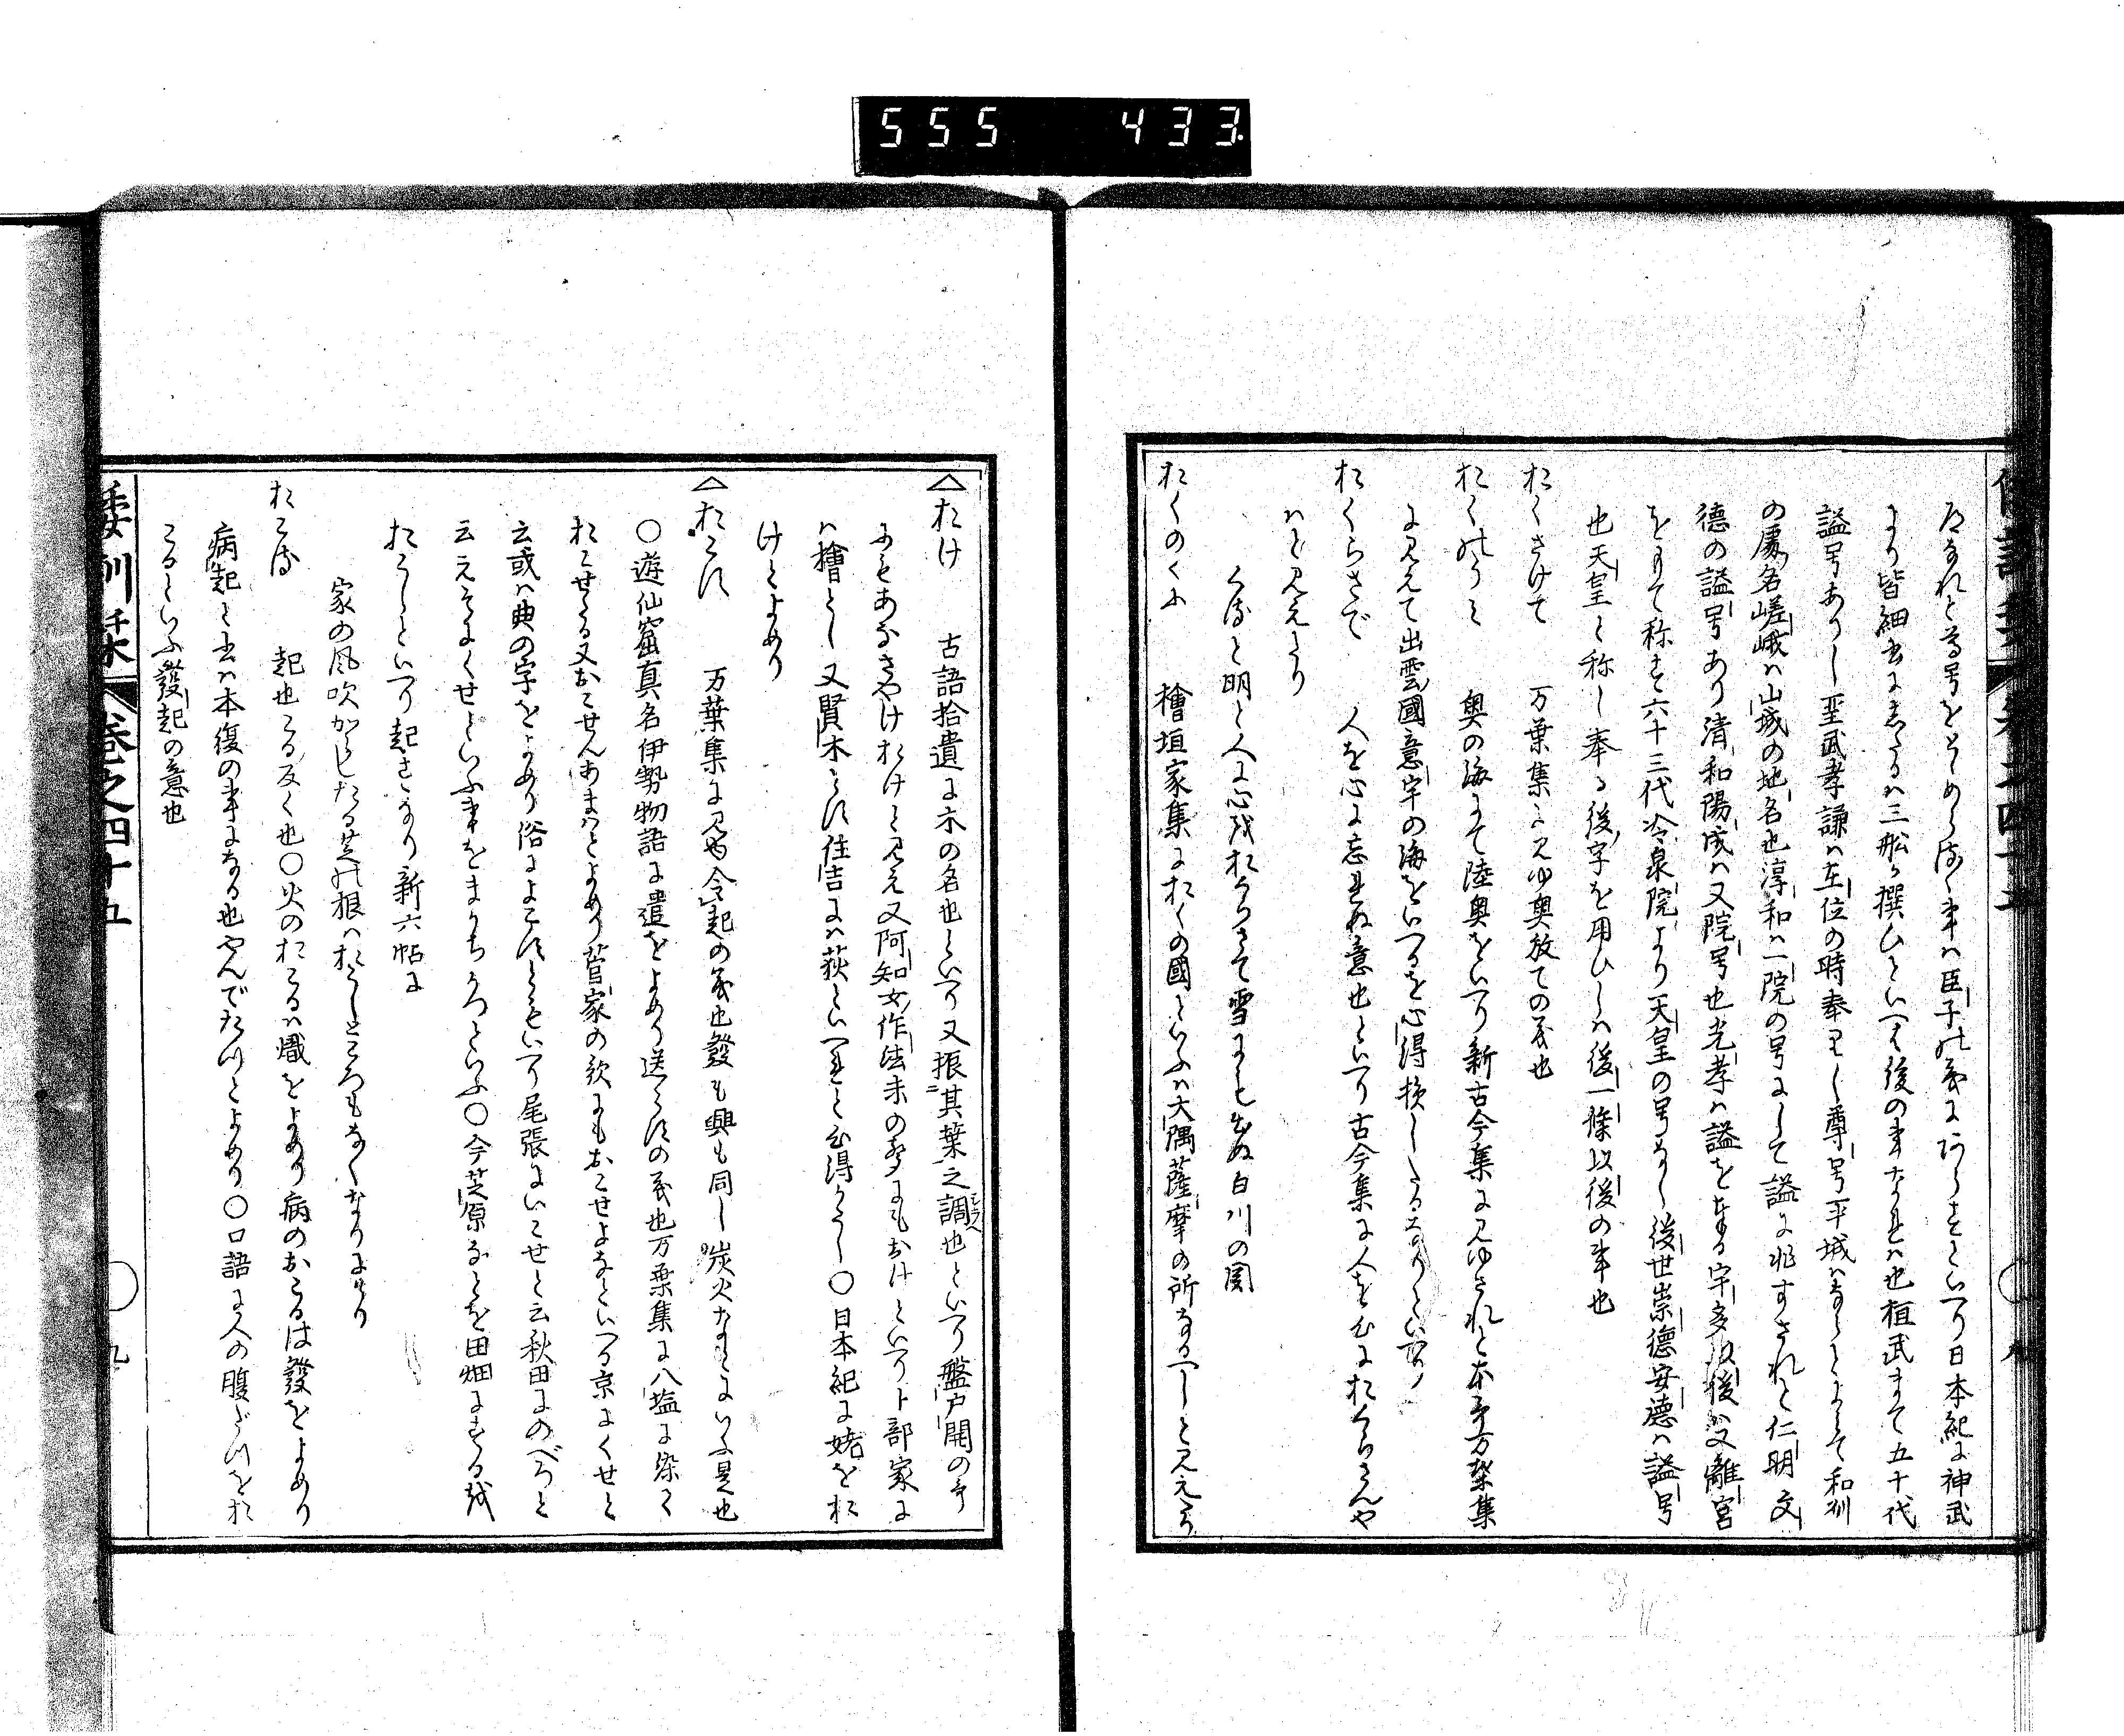 555 433
道なれと尊号をとゝめらるゝ事ハ臣子の義にあらすといへり日本紀に神武
より皆細書にしたるハ三船か撰ひといへは後の事なれは也桓武まて五十代
謚号ありし聖武孝謙ハ在位の時奉りし尊号平城ハならとよみて和訓
の属名嵯峨ハ山城の地名也淳和ハ一院の号にして謚に非すされと仁明文
德の謚号あり清和陽成ハ又院号也光孝ハ謚を奉る宇多以後ハ又離宮
をもて称す六十三代冷泉院より天皇の号なし後世崇德安德ハ謚号
也天皇と称し奉る後字を用ひしハ後一條以後の事也
おくさけて　万葉集に見ゆ奥放ての義也
おくのうミ　奥の海にて陸奥をいへり新古今集に見ゆされと本哥万葉集
に見えて出雲國意宇の海をいへるを心得損したるなりといへり
おくらさで　人を心に忘れぬ意也といへり古今集に人を心におくらさんや
ハと見えたり
くると明と人に心をおくらさて雪にもなりぬ白川の関
おくのくに　檜垣家集におくの國といふハ大隅薩摩の所なるへしと見えたり
△おけ　古語拾遺に木の名也といへり又振其葉之調也といへり磐戸開の哥
にもあなさやけおけと見え又阿知女作法末の哥にもおけといへり卜部家に
ハ檜とし又賢木とす住吉にハ荻といへれと心得かたし○日本紀に姥をお
けとよめり
△おこす　万葉集に見ゆ令起の義也發も興も同し炭火なとにいふ是也
○遊仙窟真名伊勢物語に遣をよめり送らすの義也万葉集に八塩に染て
おこせる又おこせんあまハとよめり菅家の歌にもおこせよなといへり京にくせと
云或ハ典の字をよめり俗によこすともいへり尾張にいこせと云秋田にのべろと
云えそによくせといふ事をまりちかろといふ○今芝原なとを田畑にする越
おこしといへり起す也新六帖に
家の風吹からしたる芝の根ハおこしところもなくなりにけり
おこる　起也こる反く也○火のおこるハ熾をよめり病のおこるは發をよめり
病起と書ハ本復の事になる也やんでたつとよめり○口語に人の腹だつをお
こるといふ發起の意也
倭訓栞　卷之四十五　九